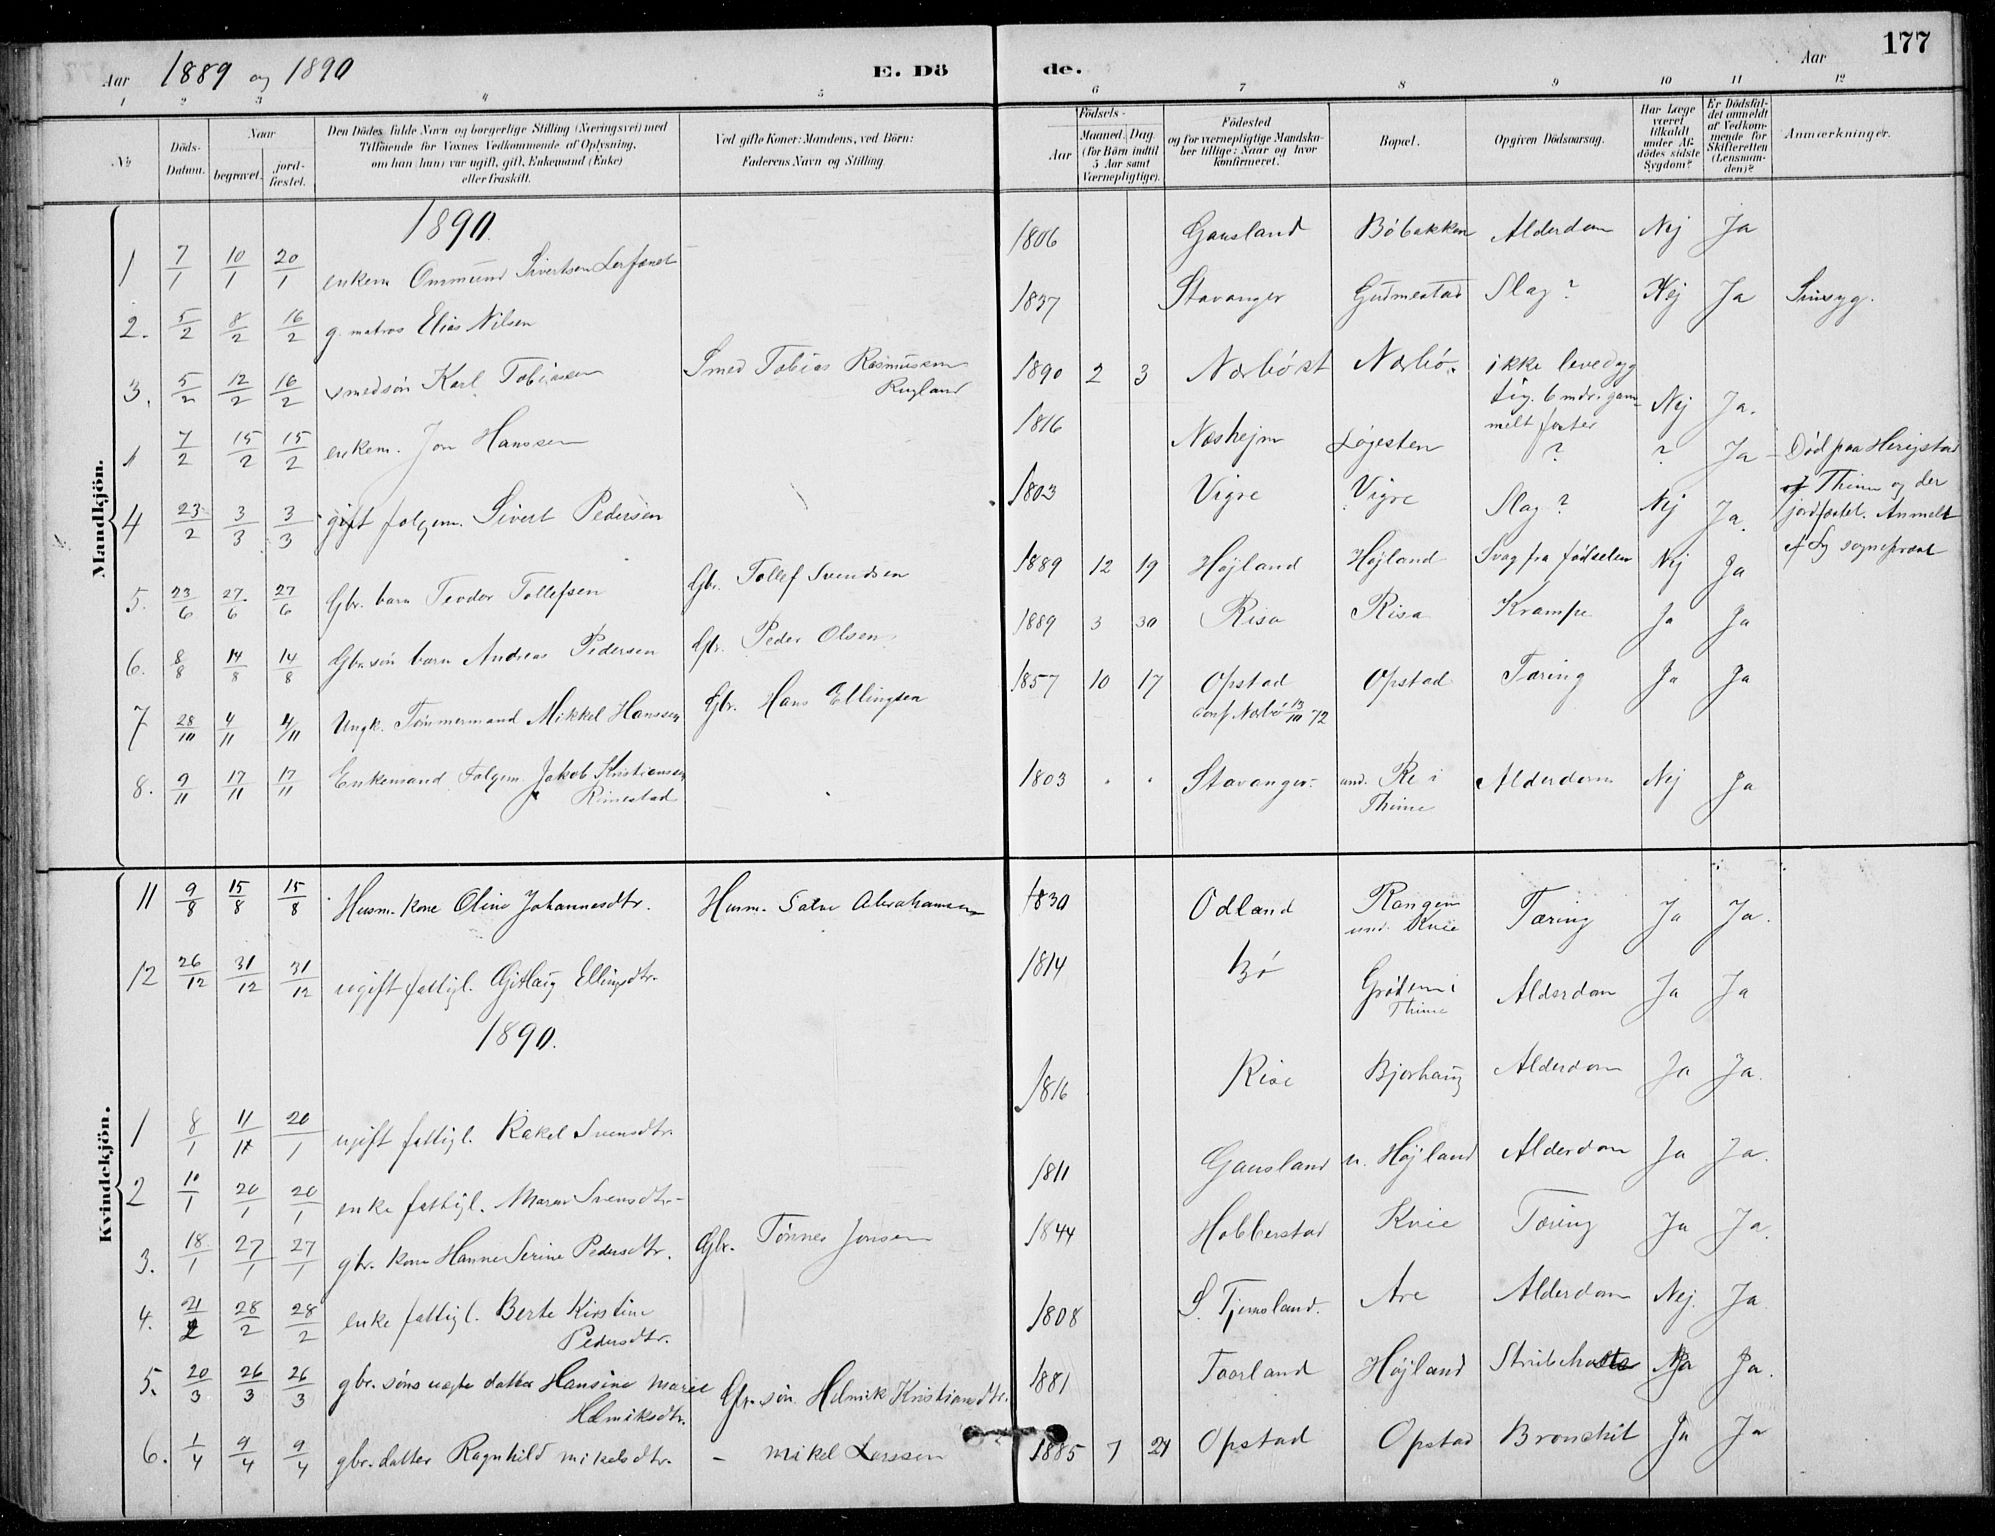 Aar 1889 og 1890 E. Dö de. Aar 177
1 2 3 4 5 6 7 8 9 10 11 12
No Döds-Datum. Naar begravet. jordfæstet. Den Dödes fulde Navn og borgerlige Stilling (Næringsvei) med Tilföiende for Voxnes Vedkommende af Oplysning, om han (hun) var ugift, gift, Enkemand (Enke) eller fraskilt. Ved gifte Koner: Mandens, ved Börn: Faderens Navn og Stilling. Födsels- Aar Maaned. Dag. (for Börn indtil 5 Aar samt Værnepligtige). Födested og for værnepligtige Mandskaber tillige: Naar og hvor konfirmeret. Bopæl. Opgiven Dödsaarsag. Har Læge været tilkaldt under Afdödes sidste Sygdom? Er Dödsfaldet anmeldt af Vedkommende for Skifteretten (Lensmanden)? Anmærkninger.
Mandkjön.
1890.
1 7/1 10/1 20/1 enkem Ommund Sivertsen 1806 Gausland Bøbakken Alderdom Nej Ja
2. 5/2 8/2 16/2 g. matros Elias Nilsen 1837 Stavanger Gudmestad Slag? Nej Ja Sinsyg.
3. 5/2 12/2 16/2 smedsøn Karl Tobiassen Smed Tobias Rasmussen 1890 2 3 Nærbø Nærbø. ikke levedyg
tig. 6 mdr. gam-
melt foster Nej Ja.
7/2 15/2 15/2 enkem. Jon Hanssen 1816 Næshejm Løgesten ? ? Ja Død paa Herigstad
4 23/2 3/3 3/3 gift folgem. Sivert Pedersen 1803 Vigre Vigre Slag? Nej Ja. Thime og der
jordfæstet. Anmelt
af sognepræst
5. 23/6 27/6 27/6 Gbr. barn Teodor Tollefsen Gbr. Tollef Svendsen 1889 12 19 Højland Højland Svag fra fødselen Nej Ja
6. 8/8 14/8 14/8 Gbr. søn barn Andreas Pedersen Gbr. Peder Olsen 1889 3 30 Risa Risa Krampe Ja Ja
7 28/10 4/11 4/11 Ungk. Tømmermand Mikkel Hanssen Gbr. Hans Ellingsen 1857 10 17 Opstad Opstad Tæring Ja Ja
conf. Nærbø 13/10 72
8. 9/11 17/11 17/11 Enkemand Folgem Jakob Kristiansen 1803 Stavanger und. Re i Alderdom Nej Ja
Rimestad Thime
Kvindekjön.
11 9/8 15/8 15/8 Husm. kone Oline Johannesdtr. Husm. Salve Abrahamsen 1830 Odland und. Kvie Tæring Ja Ja.
12 26/12 31/12 31/12 ugift fattigl. Ellingsdtr. 1814 Bø Grødem i Alderdom Ja Ja
Thime
1890.
1 8/1 11/1 20/1 ugift fattigl. Rakel Svensdtr. 1816 Rise Bjorhaug Alderdom Ja Ja.
2 10/1 20/1 20/1 enke fattigl. Maren Svensdtr. 1811 Gausland u. Højland Alderdom Ja Ja.
3. 18/1 27/1 27/1 gbr. kone Hanne Serine Pedersdtr. Gbr. Tønnes Jonsen 1844 Hobberstad Kvie Tæring Ja Ja.
4. 21/2 28/2 28/2 enke fattigl. Berte Kirstine 1808 S. Tjemsland. Are Alderdom Nej. Ja
Pedersdtr.
5. 20/3 26/3 26/3 gbr. søns uegte datter Hansine Marie Gbr. søn. Helmik Kristiansdtr. 1881 Taarland Højland Ja Ja.
Helmiksdtr.
6. 1/4 9/4 9/4 gbr. datter Ragnhild Mikelsdtr. – Mikel Larssen 1885 7 21 Opstad Opstad Bronchit Ja Ja